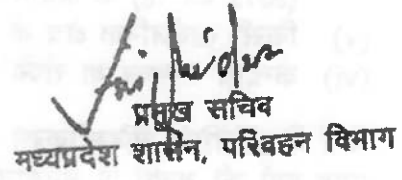 प्रमुख सचिव
मध्यप्रदेश शासन, परिवहन विभाग